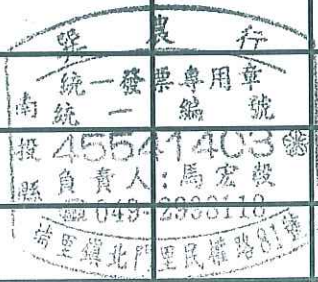 農行
統一發票專用章
南 統一編號
投 45541403
縣 負責人:馬宏毅
049-2993118
埔里鎮北門里民權路81號